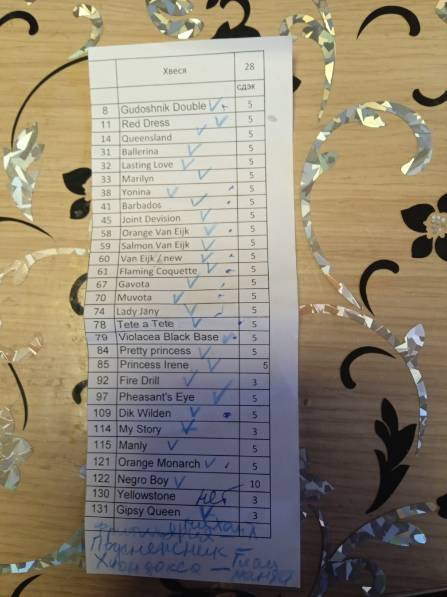 Хвеся 28
сдэк
8 Gudoshnik Double 5
11 Red Dress 5
14 Queensland 5
31 Ballerina 5
32 Lasting Love 5
33 Marilyn 5
38 Yonina 5
41 Barbados 5
45 Joint Devision 5
58 Orange Van Eijk 5
59 Salmon Van Eijk 5
60 Van Eijk new 5
61 Flaming Coquette 5
67 Gavota 5
70 Muvota 5
74 Lady Jany 5
78 Tete a Tete 5
79 Violacea Black Base 5
84 Pretty princess 5
85 Princess Irene 5
92 Fire Drill 3
97 Pheasant's Eye 5
109 Dik Wilden 5
114 My Story 3
115 Manly 5
121 Orange Monarch 5
122 Negro Boy 10
130 Yellowstone нет 3
131 Gipsy Queen 3